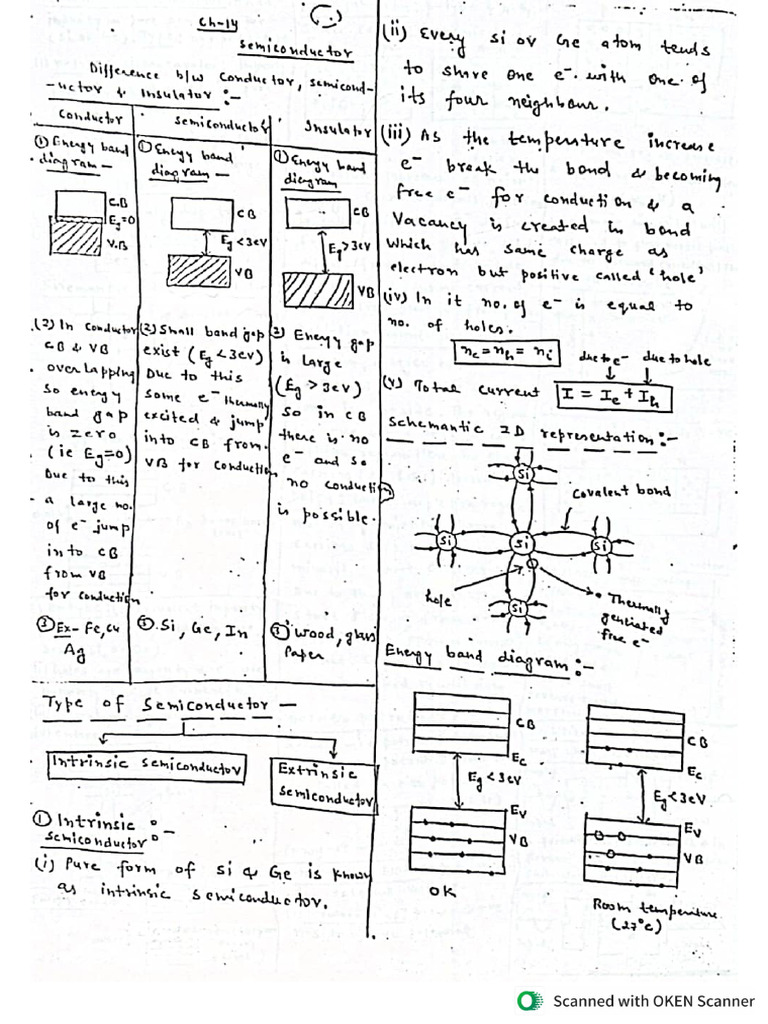 Ch-14
semiconductor
Difference b/w Conductor, semicond-
-uctor & Insulator :-
Conductor
① Energy band
diagram -
C.B
Eg=0
V.B
(2) In conductor
CB & VB
overlapping
so energy
band gap
is zero
(ie Eg=0)
Due to this
a large no.
of e⁻ jump
into CB
from VB
for conduction
③ Ex- Fe, Cu
Ag
semiconductor
① Energy band
diagram -
CB
Eg<3ev
VB
(2) Small band gap
exist (Eg<3ev)
Due to this
some e⁻ thermally
excited & jump
into CB from
VB for conduction
③. Si, Ge, In
Insulator
① Energy band
diegram
CB
Eg>3ev
VB
2) Energy gap
is large
(Eg>3ev)
so in CB
there is no
e⁻ and so
no conduction
is possible.
③ wood, glass
Paper
Type of Semiconductor -
Intrinsic semiconductor
Extrinsic
semiconductor
① Intrinsic :-
semiconductor
(i) Pure form of si & Ge is known
as intrinsic semiconductor.
(ii) Every si or Ge atom tends
to shre one e⁻ with one of
its four neighbour.
(iii) As the temperature increase
e⁻ break the bond & becoming
free e⁻ for conduction & a
Vacancy is created in bond
which has same charge as
electron but positive called 'hole'
(iv) In it no. of e⁻ is equal to
no. of holes.
ne = nh = ni
due to e⁻ due to hole
(v) Total current I = Ie + Ih
Schemantic 2D representation :-
Si
covalent bond
Si Si Si
hole
Thermally
genetiated
free e⁻
Si
Energy band diagram :-
CB
Ec
Eg<3ev
Ev
VB
OK
CB
Ec
Eg<3eV
Ev
VB
Room temperature
(27°c)
Scanned with OKEN Scanner